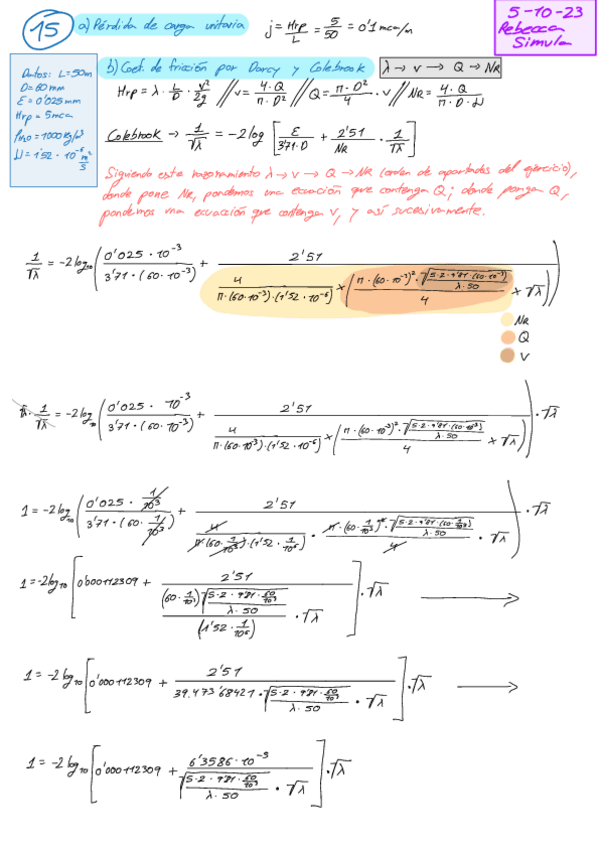 15 a) Pérdida de carga unitaria j = Hrp/L = 5/50 = 0'1 mca/m
5-10-23
Rebecca
Simula
Datos: L=50m
D=60mm
ε=0'025mm
Hrp=5mca
ρH2O=1000kg/m³
ν=1'52·10⁻⁶ m²/s
b) Coef. de fricción por Darcy y Colebrook λ → v → Q → NR
Hrp = λ · L/D · v²/2g // v = 4·Q/π·D² // Q = π·D²/4 · v // NR = 4·Q/π·D·ν
Colebrook → 1/√λ = -2log[ε/3'71·D + 2'51/NR · 1/√λ]
Siguiendo este razonamiento λ → v → Q → NR (orden de apartados del ejercicio),
donde pone NR, pondemos una ecuación que contenga Q; donde ponga Q,
pondemos una ecuación que contenga v, y así sucesivamente.
1/√λ = -2log₁₀(0'025·10⁻³/3'71·(60·10⁻³) + 2'51/(4/π·(60·10⁻³)·(1'52·10⁻⁶) × (π·(60·10⁻³)²·√(5·2·9'81·(60·10⁻³)/λ·50)/4 × √λ)))
NR
Q
v
√λ · 1/√λ = -2log₁₀(0'025·10⁻³/3'71·(60·10⁻³) + 2'51/(4/π·(60·10⁻³)·(1'52·10⁻⁶) × (π·(60·10⁻³)²·√(5·2·9'81·(60·10⁻³)/λ·50)/4 × √λ)))·√λ
1 = -2log₁₀(0'025·1/10³/3'71·(60·1/10³) + 2'51/(4/π·(60·1/10³)·(1'52·1/10⁶) · π·(60·1/10³)²·√(5·2·9'81·(60·1/10³)/λ·50)/4 · √λ))·√λ
1 = -2log₁₀[0'000112309 + 2'51/((60·1/10³)√(5·2·9'81·60/10³/λ·50)/(1'52·1/10⁶) · √λ)]·√λ →
1 = -2log₁₀[0'000112309 + 2'51/(39.473'68421·√(5·2·9'81·60/10³/λ·50) · √λ)]·√λ →
1 = -2log₁₀[0'000112309 + 6'3586·10⁻⁵/(√(5·2·9'81·60/10³/λ·50) · √λ)]·√λ